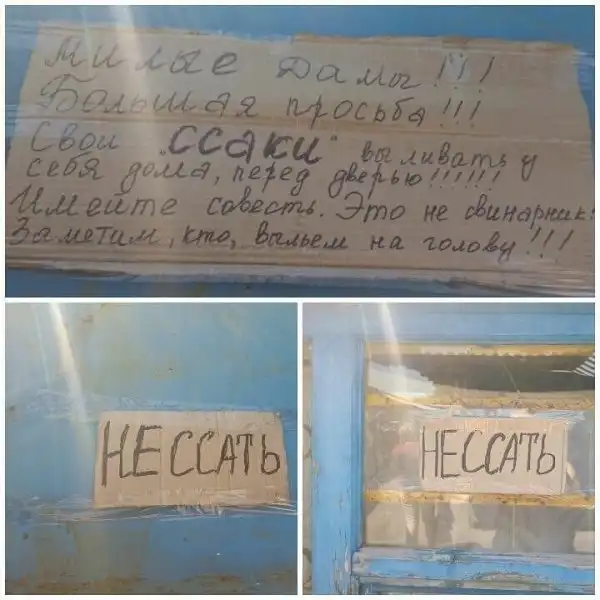 Милые Дамы!!!
Большая просьба!!!
Свои "ССАКИ" выливать у
себя дома, перед дверью!!!!!!!
Имейте совесть. Это не свинарник!
Заметим, кто, выльем на голову!!!
НЕССАТЬ
НЕССАТЬ